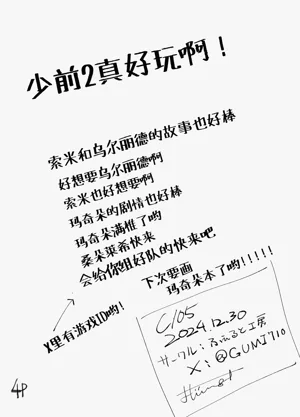 少前2真好玩啊！
索米和乌尔丽德的故事也好棒
好想要乌尔丽德啊
索米也好想要啊
玛奇朵的剧情也好棒
玛奇朵满惟了哟
桑朵莱希快来
会给你组好队的快来吧
下次要画
玛奇朵本了哟!!!!!
X里有游戏ID哟!
C105
2024.12.30
サークル：るふるど工房
X：@GUMI710
4P